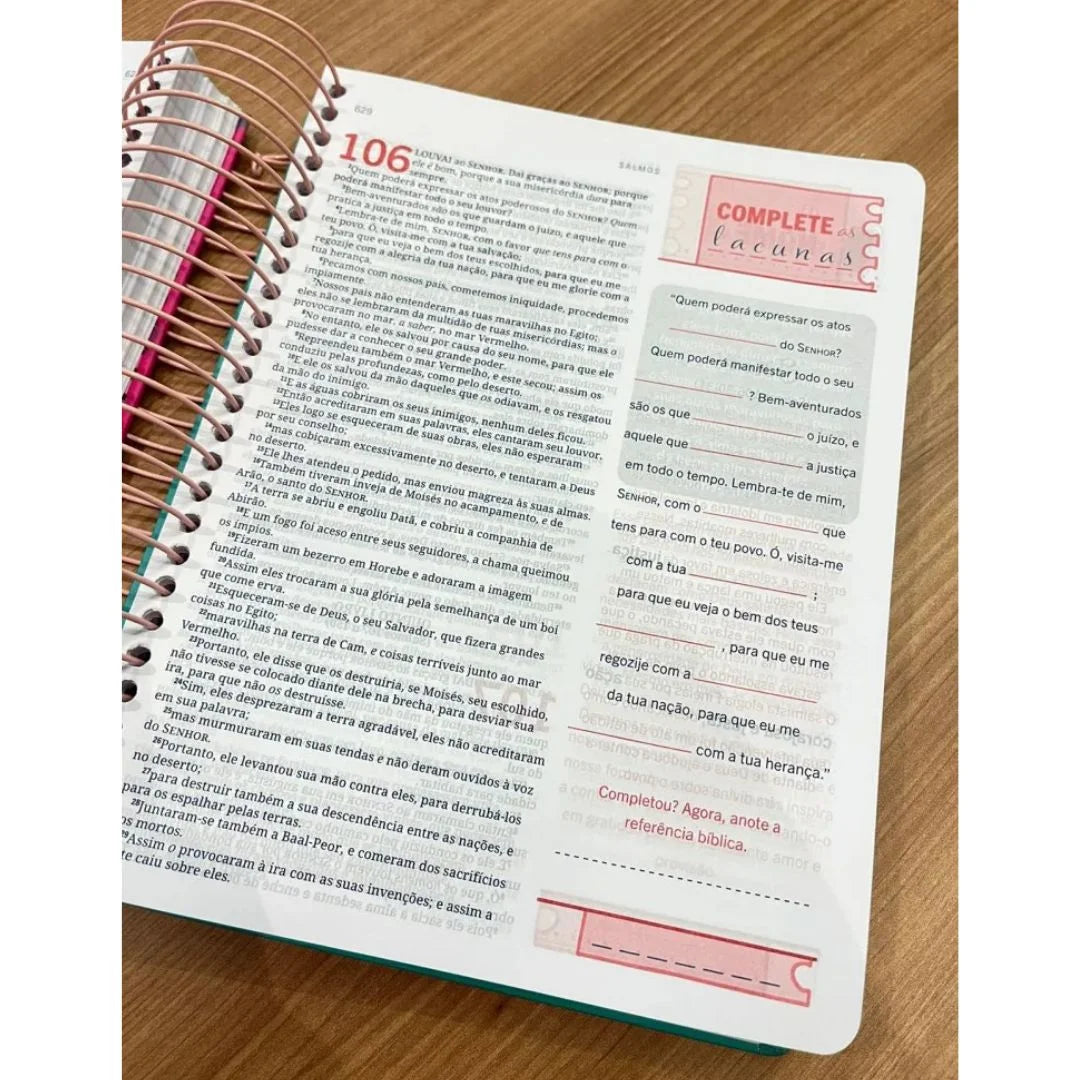 629
SALMOS
106 LOUVAI ao SENHOR. Dai graças ao SENHOR, porque
ele é bom, porque a sua misericórdia dura para
sempre.
²Quem poderá expressar os atos poderosos do SENHOR? Quem
poderá manifestar todo o seu louvor?
³Bem-aventurados são os que guardam o juízo, e aquele que
pratica a justiça em todo o tempo.
⁴Lembra-te de mim, SENHOR, com o favor que tens para com o
teu povo. Ó, visita-me com a tua salvação;
⁵para que eu veja o bem dos teus escolhidos, para que eu me
regozije com a alegria da tua nação, para que eu me glorie com a
tua herança.
⁶Pecamos com nossos pais, cometemos iniquidade, procedemos
impiamente.
⁷Nossos pais não entenderam as tuas maravilhas no Egito;
eles não se lembraram da multidão de tuas misericórdias; mas o
provocaram no mar, a saber, no mar Vermelho.
⁸No entanto, ele os salvou por causa do seu nome, para que ele
pudesse dar a conhecer o seu grande poder.
⁹Repreendeu também o mar Vermelho, e este secou; assim os
conduziu pelas profundezas, como pelo deserto.
¹⁰E ele os salvou da mão daqueles que os odiavam, e os resgatou
da mão do inimigo.
¹¹E as águas cobriram os seus inimigos, nenhum deles ficou.
¹²Então acreditaram em suas palavras, eles cantaram seu louvor.
¹³Eles logo se esqueceram de suas obras, eles não esperaram
por seu conselho;
¹⁴mas cobiçaram excessivamente no deserto, e tentaram a Deus
no deserto.
¹⁵Ele lhes atendeu o pedido, mas enviou magreza às suas almas.
¹⁶Também tiveram inveja de Moisés no acampamento, e de
Arão, o santo do SENHOR.
¹⁷A terra se abriu e engoliu Datã, e cobriu a companhia de
Abirão.
¹⁸E um fogo foi aceso entre seus seguidores, a chama queimou
os ímpios.
¹⁹Fizeram um bezerro em Horebe e adoraram a imagem
fundida.
²⁰Assim eles trocaram a sua glória pela semelhança de um boi
que come erva.
²¹Esqueceram-se de Deus, o seu Salvador, que fizera grandes
coisas no Egito;
²²maravilhas na terra de Cam, e coisas terríveis junto ao mar
Vermelho.
²³Portanto, ele disse que os destruiria, se Moisés, seu escolhido,
não tivesse se colocado diante dele na brecha, para desviar sua
ira, para que não os destruísse.
²⁴Sim, eles desprezaram a terra agradável, eles não acreditaram
em sua palavra;
²⁵mas murmuraram em suas tendas e não deram ouvidos à voz
do SENHOR.
²⁶Portanto, ele levantou sua mão contra eles, para derrubá-los
no deserto;
²⁷para destruir também a sua descendência entre as nações, e
para os espalhar pelas terras.
²⁸Juntaram-se também a Baal-Peor, e comeram dos sacrifícios
os mortos.
²⁹Assim o provocaram à ira com as suas invenções; e assim a
te caiu sobre eles.
COMPLETE as
lacunas
"Quem poderá expressar os atos
____ do SENHOR?
Quem poderá manifestar todo o seu
____ ? Bem-aventurados
são os que ____ o juízo, e
aquele que ____ a justiça
em todo o tempo. Lembra-te de mim,
SENHOR, com o ____ que
tens para com o teu povo. Ó, visita-me
com a tua ____ ;
para que eu veja o bem dos teus
____ , para que eu me
regozije com a ____
da tua nação, para que eu me
____ com a tua herança."
Completou? Agora, anote a
referência bíblica.